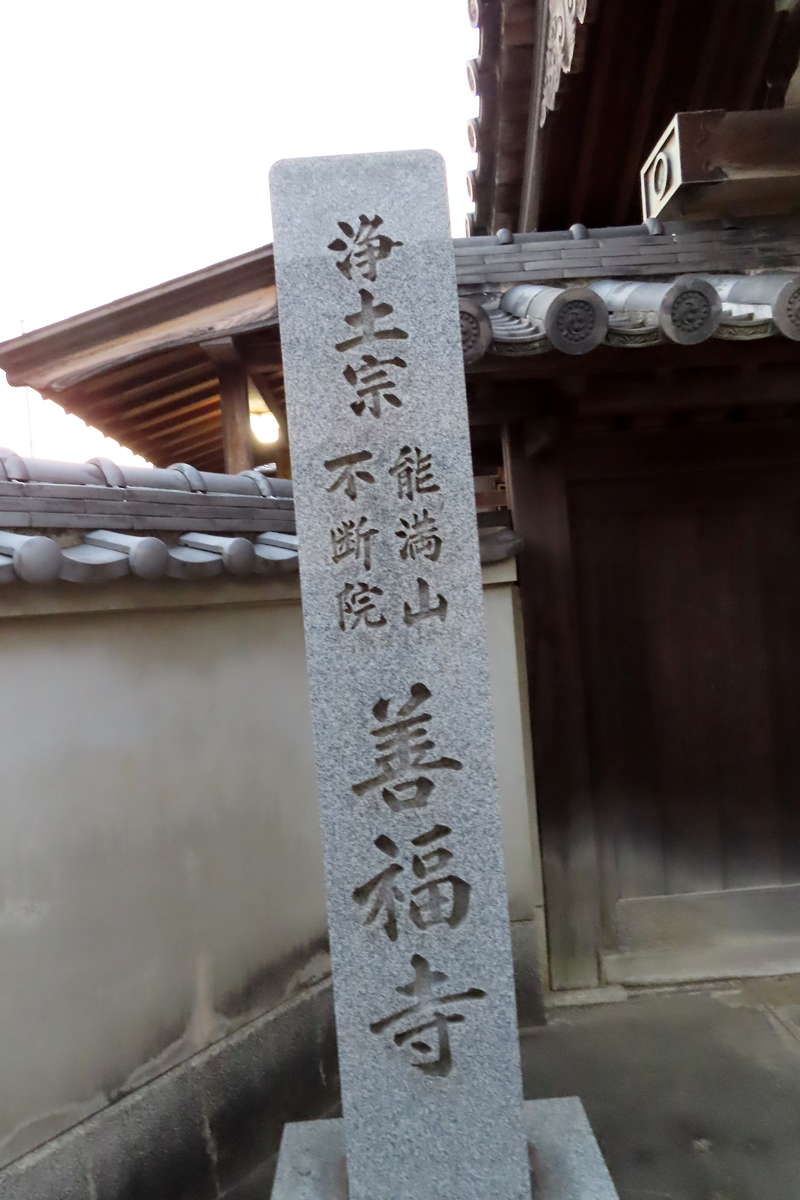 浄土宗
能満山
不断院
善福寺